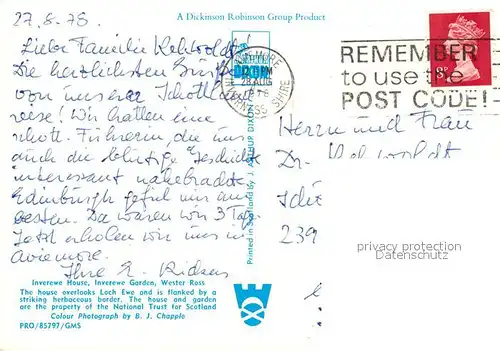 27.8.78.
A Dickinson Robinson Group Product
Liebe Familie
Die herzlichsten Grüße
von unserer Schottland-
reise! Wir hatten eine
schott. Führerin, die uns
auch die blutige Geschichte
interessant nahebrachte.
Edinburgh gefiel uns am
besten. Da waren wir 3 Tage.
Jetzt erholen wir uns in
Aviemore.
Ihre E.
AVIEMORE
28 AUG
INVERNESS SHIRE
REMEMBER
to use the
POST CODE!
Herrn und Frau
Dr.
239
privacy protection
Datenschutz
Printed in Scotland by J. ARTHUR DIXON
Inverewe House, Inverewe Garden, Wester Ross
The house overlooks Loch Ewe and is flanked by a
striking herbaceous border. The house and garden
are the property of the National Trust for Scotland
Colour Photograph by B. J. Chapple
PRO/85797/GMS